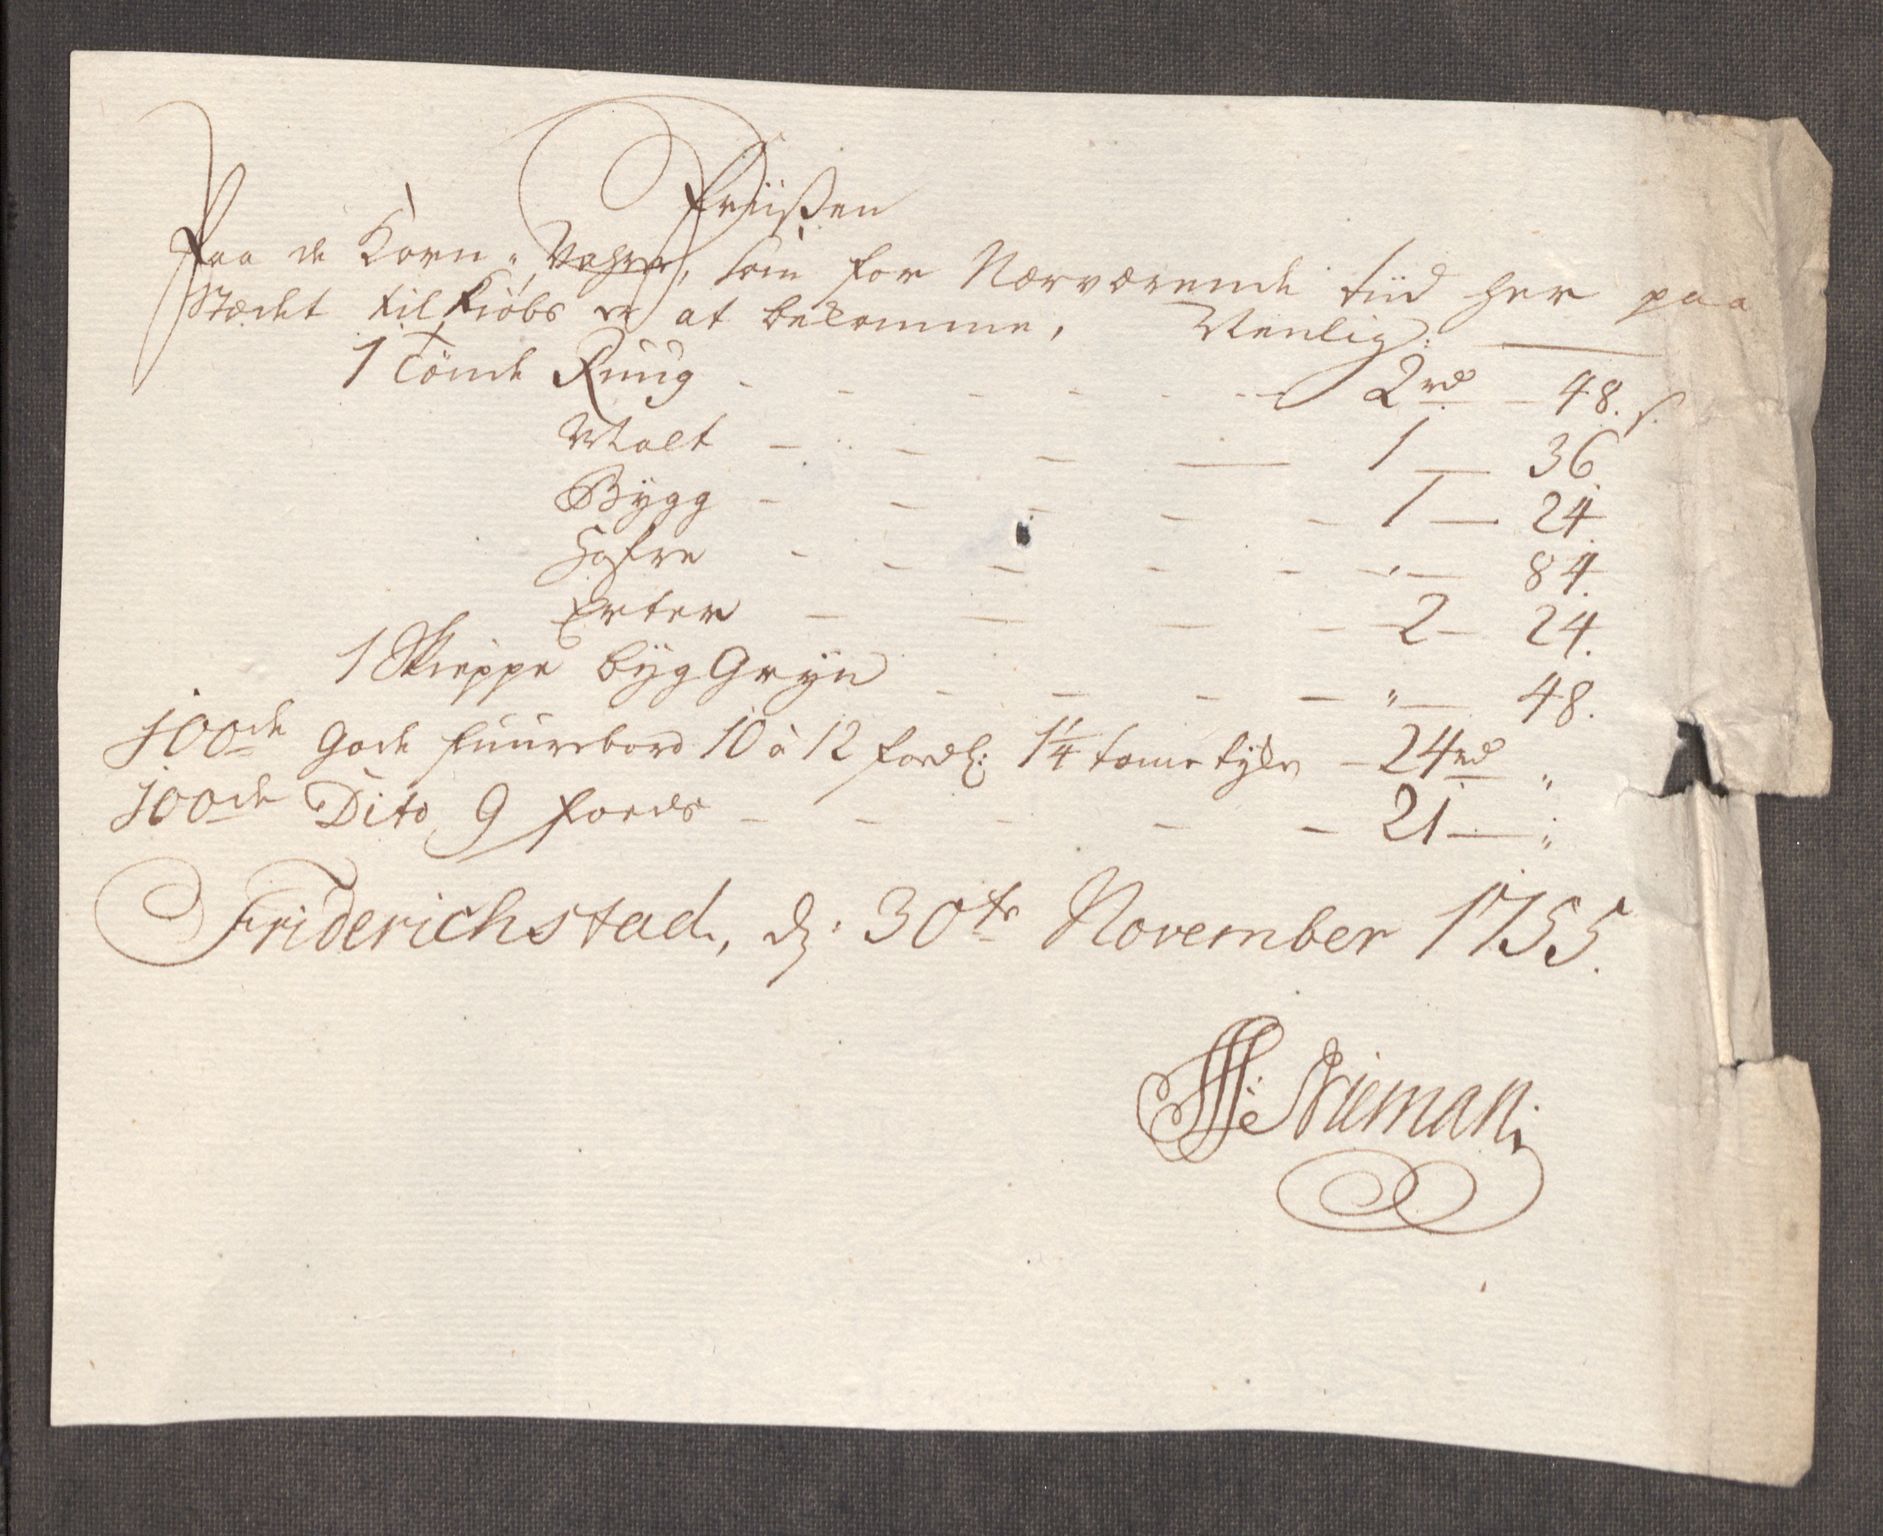 Priisen
Paa de Korn-Vahre, som for Nærværende tiid her paa
Stædet til Kiøbs er at bekomme, Nemlig:
1 Tønde Ruug - - - - - - 2 rd - 48. s.
Malt - - - - 1 - 36.
Bygg - - - - - 1 - 24.
Hafre - - - - - " - 84.
Erter - - - - 2 - 24.
1 Skieppe byg Gryn - - - - " - 48.
100de gode fuurebord 10 a 12 fods l: 1 1/4 tome tykke - 24 rd "
100de Dito 9 foeds - - - - - 21 - "
Friderichstad, d: 30te November 1755.
Nieman.